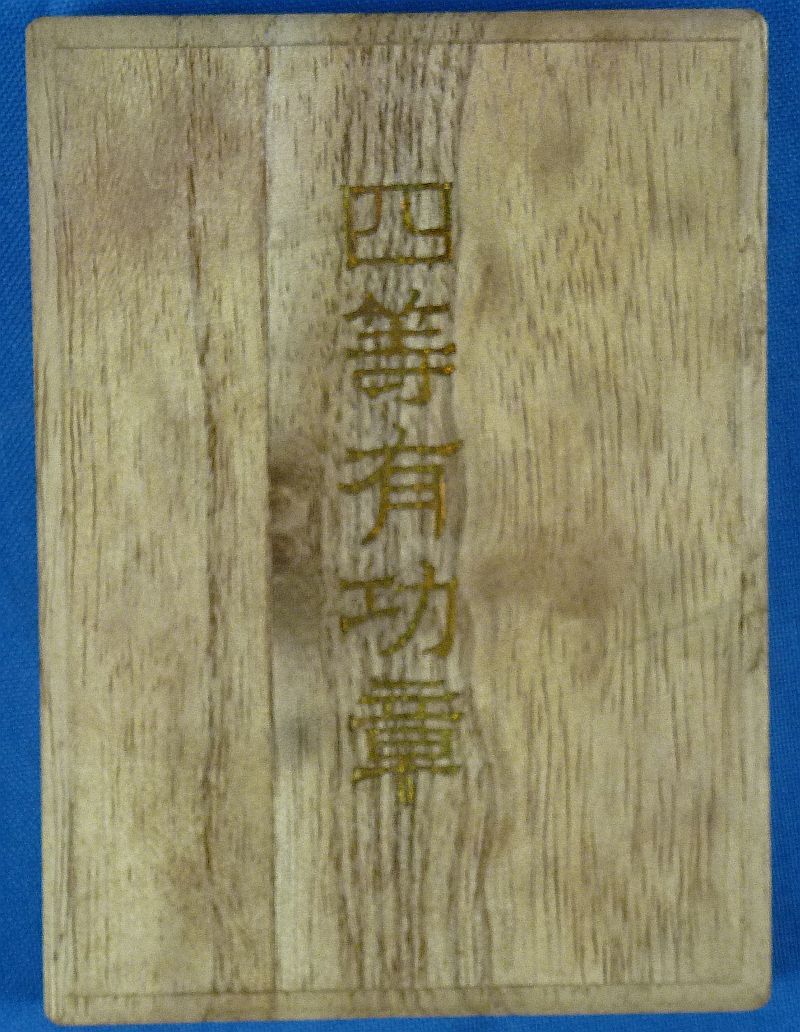 四等有功章